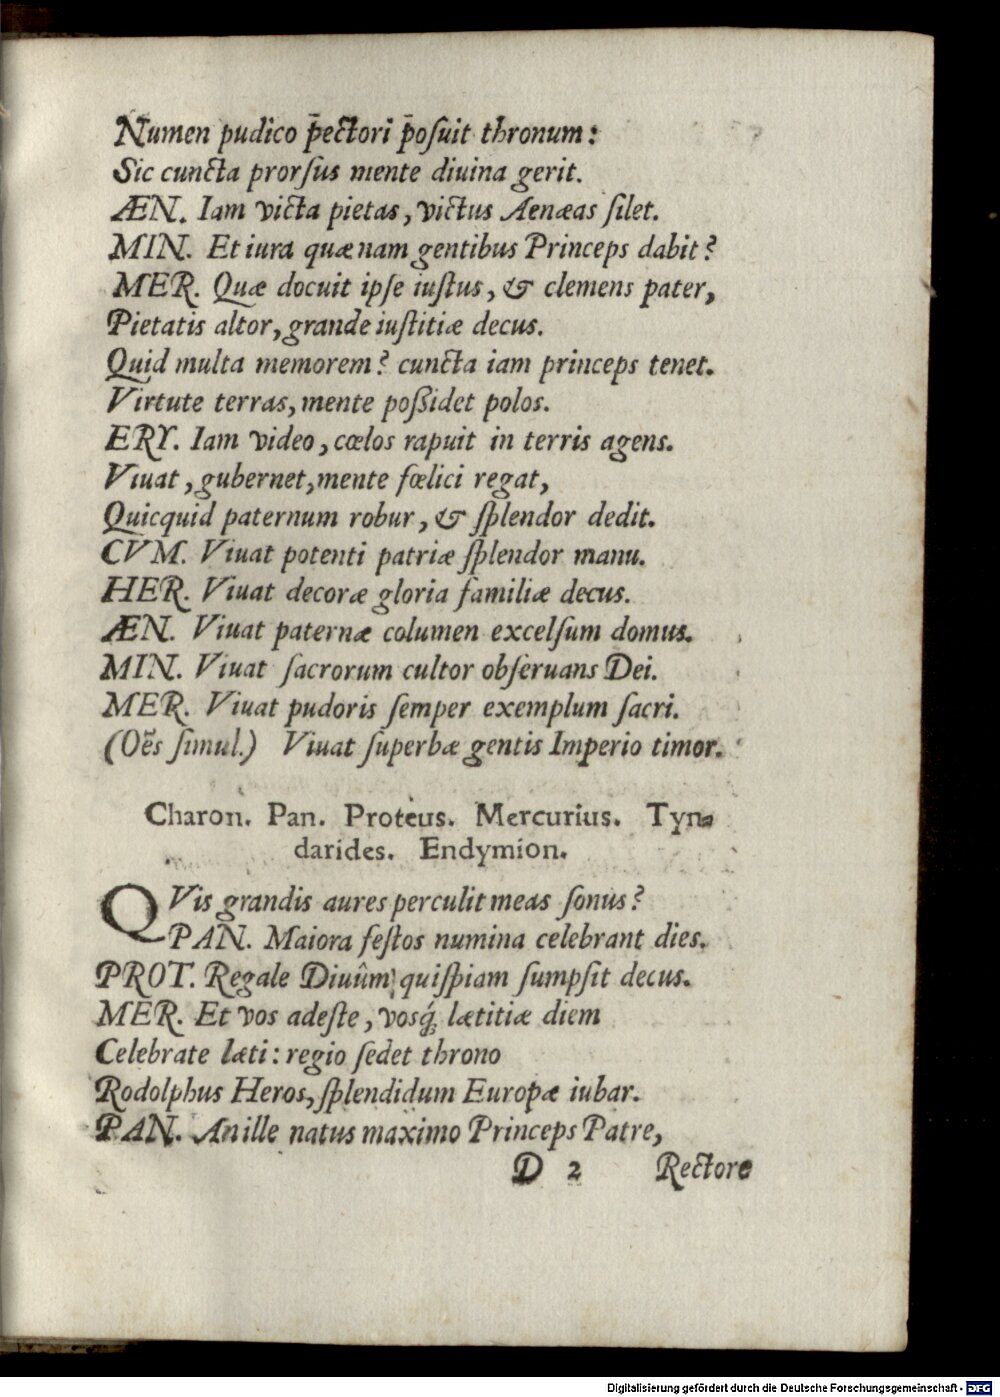 Numen pudico p̄ectori p̄osuit thronum:
Sic cuncta prorſus mente diuina gerit.
ÆN. Iam victa pietas, victus Aenæas ſilet.
MIN. Et iura quænam gentibus Princeps dabit?
MER. Quæ docuit ipſe iuſtus, & clemens pater,
Pietatis altor, grande iuſtitiæ decus.
Quid multa memorem? cuncta iam princeps tenet.
Virtute terras, mente poßidet polos.
ERY. Iam video, cœlos rapuit in terris agens.
Viuat, gubernet, mente fœlici regat,
Quicquid paternum robur, & ſplendor dedit.
CVM. Viuat potenti patriæ ſplendor manu.
HER. Viuat decoræ gloria familiæ decus.
ÆN. Viuat paternæ columen excelſum domus.
MIN. Viuat ſacrorum cultor obſeruans Dei.
MER. Viuat pudoris ſemper exemplum ſacri.
(Oēs ſimul.) Viuat ſuperbæ gentis Imperio timor.
Charon. Pan. Proteus. Mercurius. Tyn-
darides. Endymion.
QVis grandis aures perculit meas ſonus?
PAN. Maiora feſtos numina celebrant dies.
PROT. Regale Diuûm quiſpiam ſumpſit decus.
MER. Et vos adeſte, vosq́; lætitiæ diem
Celebrate læti: regio ſedet throno
Rodolphus Heros, ſplendidum Europæ iubar.
PAN. An ille natus maximo Princeps Patre,
D 2 Rectore
Digitalisierung gefördert durch die Deutsche Forschungsgemeinschaft - DFG